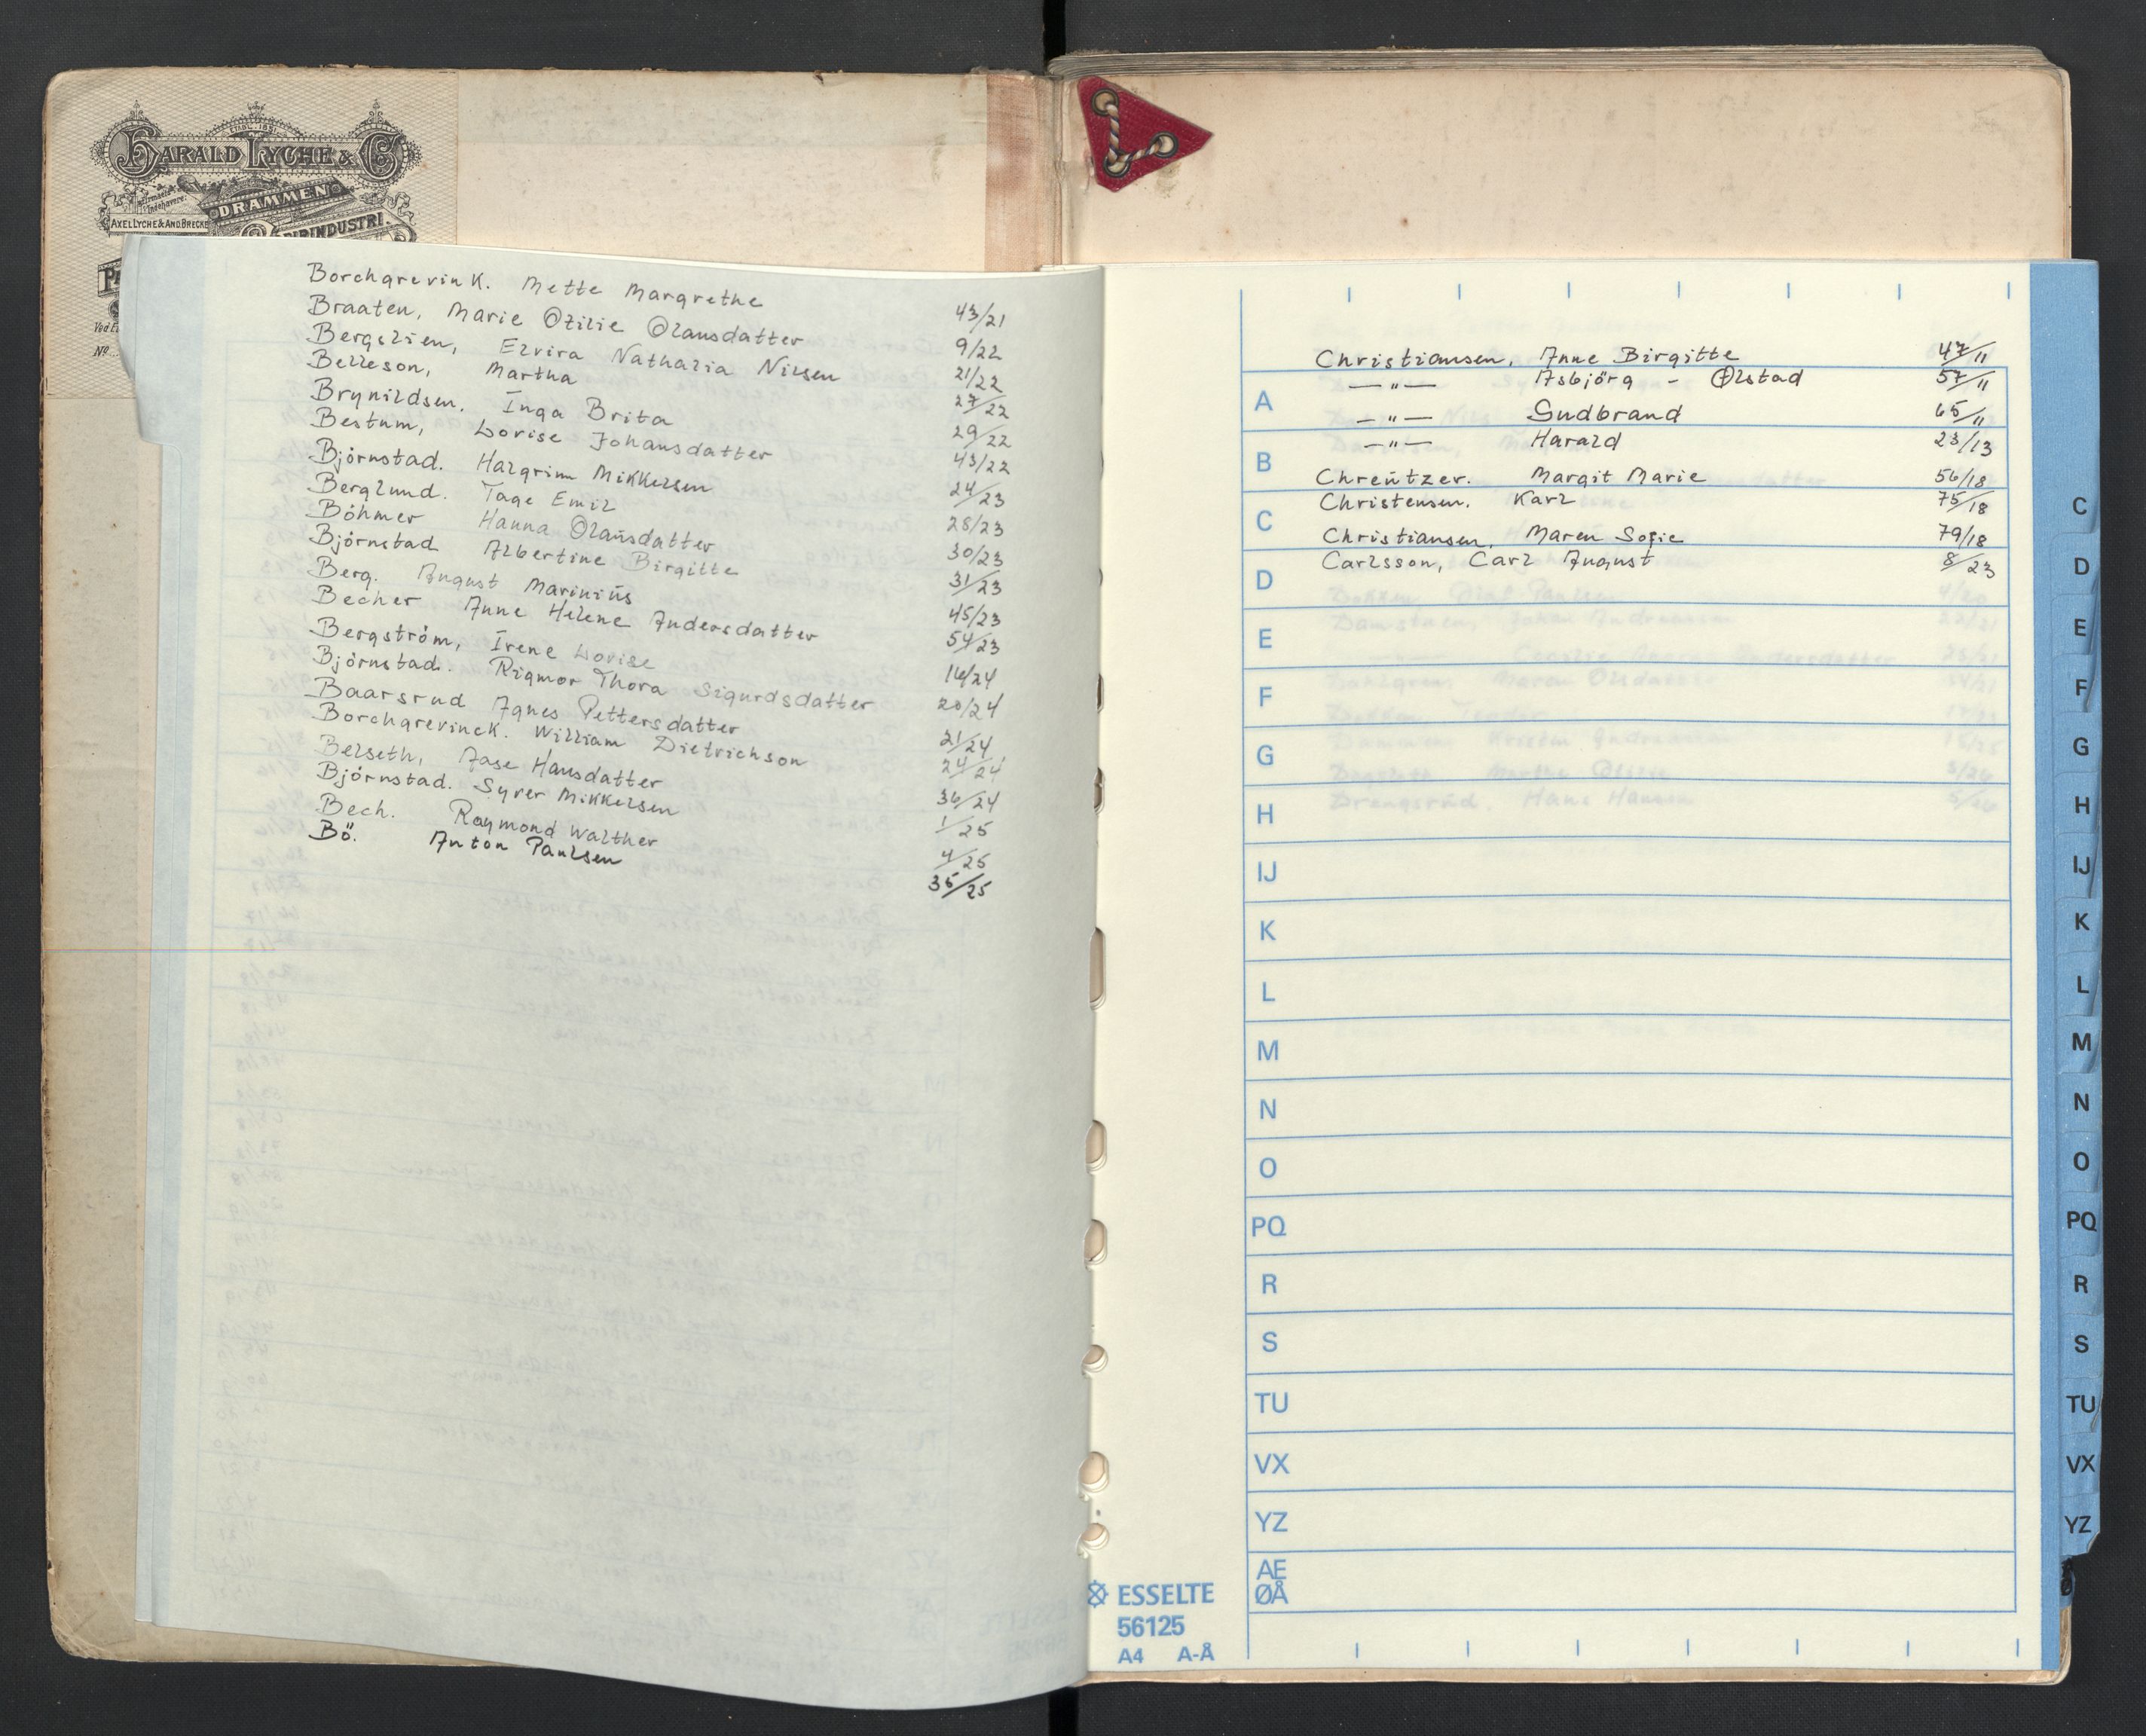 ETABL. 1881
HARALD LYCHE & Co
DRAMMEN
AXEL LYCHE & AND. BRECKE
PAPIRINDUSTRI
No
Borchgrevink. Mette Margrethe 43/21
Braaten, Marie Otilie Olausdatter 9/22
Bergslien, Elvira Nathalia Nilsen 21/22
Belleson, Martha 27/22
Brynildsen. Inga Brita 29/22
Bestum, Lovise Johansdatter 43/22
Björnstad. Halgrim Mikkelsen 24/23
Berglund. Tage Emil 28/23
Böhmer Hanna Olausdatter 30/23
Björnstad Albertine Birgitte 31/23
Berg. August Marinius 45/23
Becher Anne Helene Andersdatter 54/23
Bergström, Irene Lovise 14/24
Björnstad. Rigmor Thora Sigurdsdatter 20/24
Baarsrud Agnes Pettersdatter 21/24
Borchgrevinck. William Dietrichson 24/24
Belseth, Aase Hansdatter 36/24
Björnstad. Syver Mikkelsen 1/25
Bech. Raymond Walther 4/25
Bö. Anton Paulsen 35/25
Christiansen, Anne Birgitte 47/11
— " — Asbjörg - Ølstad 57/11
— " — Gudbrand 65/11
— " — Harald 23/13
Chreutzer. Margit Marie 56/18
Christensen. Karl 75/18
Christiansen, Maren Sofie 79/18
Carlsson, Carl August 8/23
A
B
C
D
E
F
G
H
IJ
K
L
M
N
O
PQ
R
S
TU
VX
YZ
AE
ØÅ
ESSELTE
56125
A4 A-Å
C
D
E
F
G
H
IJ
K
L
M
N
O
PQ
R
S
TU
VX
YZ